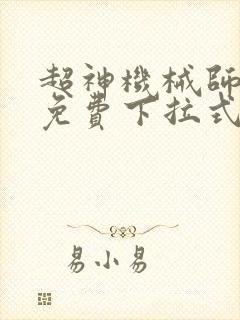 超神機械師
免費下拉式
易小易